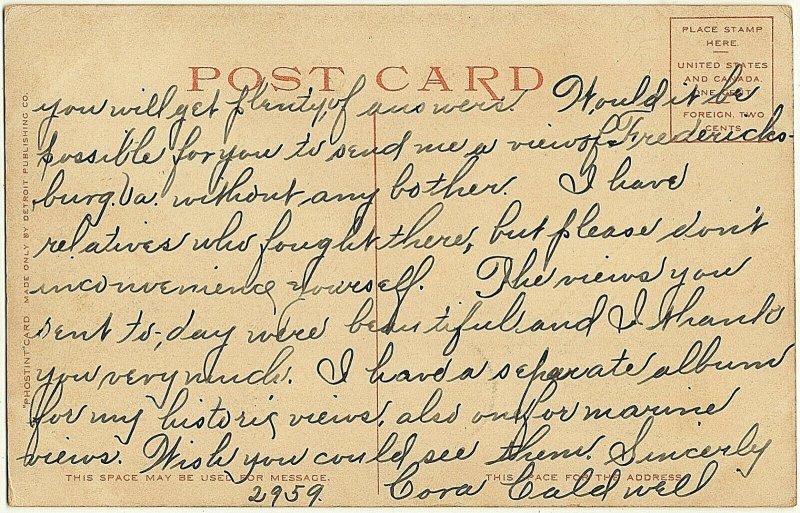 PLACE STAMP
HERE.
UNITED STATES
AND CANADA.
ONE CENT.
FOREIGN, TWO
CENTS
POST CARD
you will get plenty, of answers. Would it be
possible for you to send me a view of Fredericks-
burg Va. without any bother. I have
relatives who fought there, but please don't
inconvenience yourself. The views you
sent to-day were beautiful and I thank
you very much. I have a separate album
for my historic views, also one for marine
views. Wish you could see them. Sincerely
THIS SPACE MAY BE USED FOR MESSAGE.
THIS SPACE FOR THE ADDRESS.
2959. Cora Caldwell
"PHOSTINT" CARD MADE ONLY BY DETROIT PUBLISHING CO.